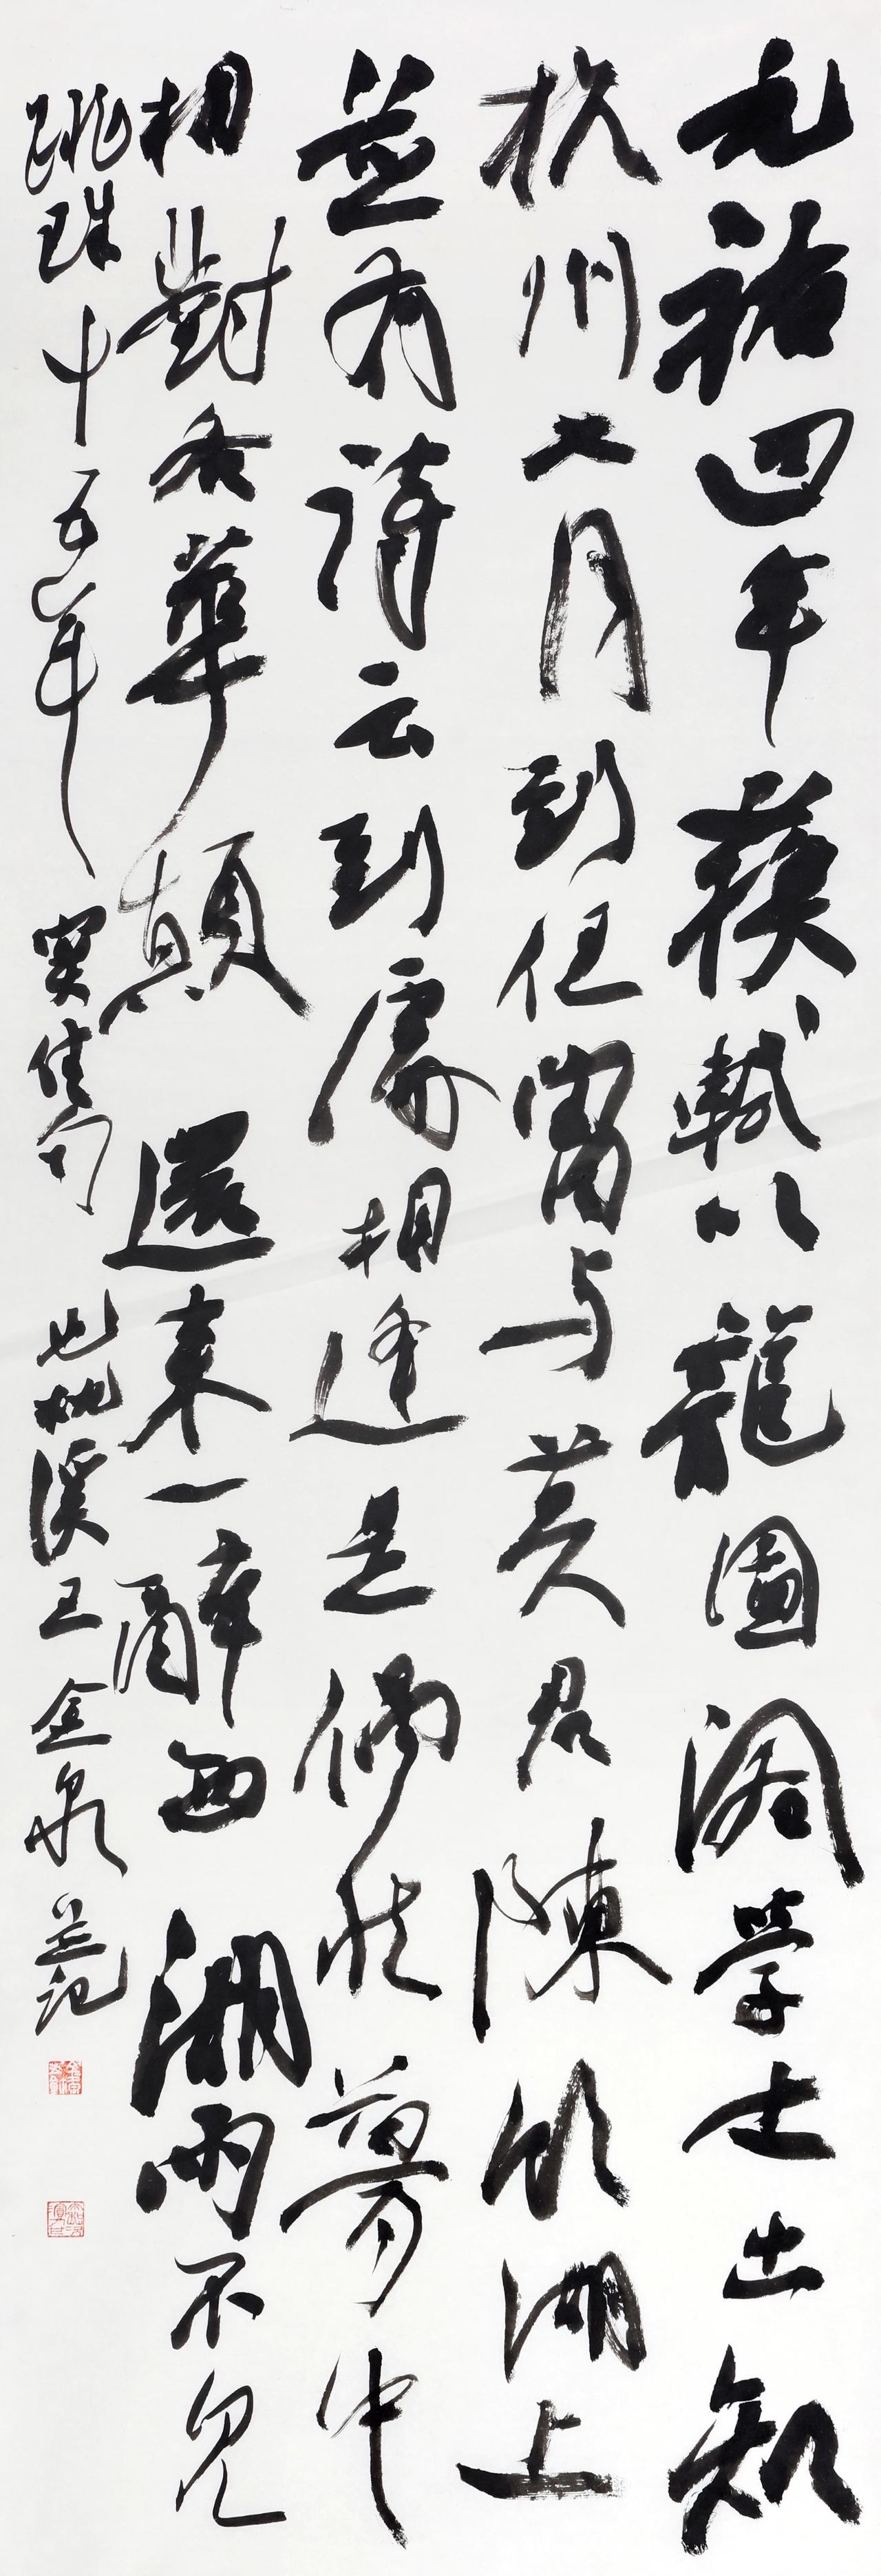 元祐四年蘇軾以龍圖閣学士出知
杭州七月到任嘗与莫君陳飲湖上
並有詩云到處相逢是偶然夢中
相對各華顛還來一醉西湖雨不見
跳珠十五年寔佳句也桃溪王金泉並记